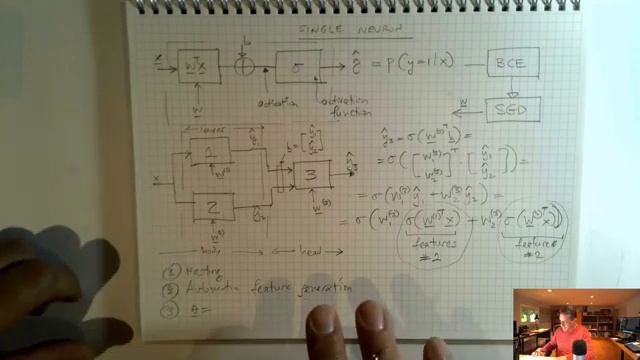 SINGLE NEURON
x → wᵀx → + → σ → ŷ = p(y=1|x) → BCE
b
w
activation
activation function
w
SED
layer
ŷ₁
h = [ŷ₁ ŷ₂]
x
1
w⁽¹⁾
2
w⁽²⁾
ŷ₂
3
w⁽³⁾
ŷ₃
body
head
ŷ₃ = σ(w⁽³⁾ᵀ h) =
= σ([w₁⁽³⁾ w₂⁽³⁾]ᵀ [ŷ₁ ŷ₂]) =
= σ(w₁⁽³⁾ ŷ₁ + w₂⁽³⁾ ŷ₂) =
= σ(w₁⁽³⁾ σ(w⁽¹⁾ᵀx) + w₂⁽³⁾ σ(w⁽²⁾ᵀx))
features #2
features #2
① Nesting
② Automatic feature generation
③ θ =